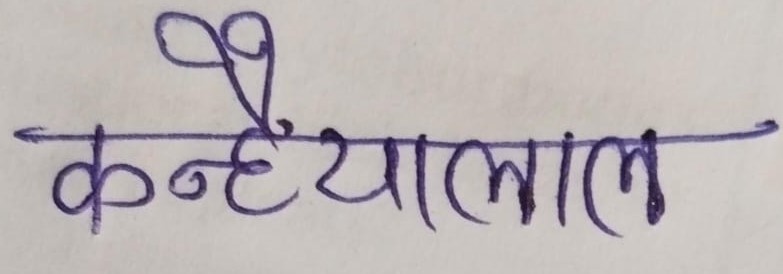 कन्हैयालाल